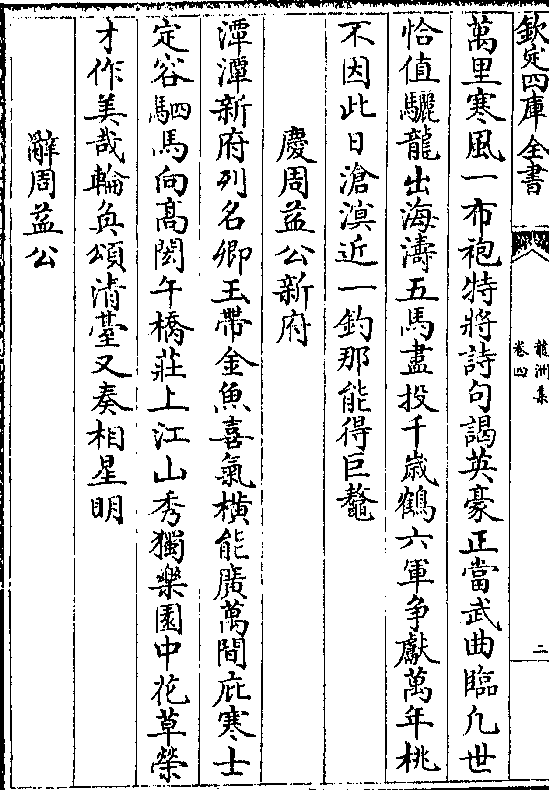 欽定四庫全書
龍洲集
卷四
二
萬里寒風一布袍特將詩句謁英豪正當武曲臨凡世
恰值驪龍出海濤五馬盡投千歲鶴六軍争獻萬年桃
不因此日滄溟近一釣那能得巨鼇
慶周益公新府
潭潭新府列名卿玉帶金魚喜氣橫能廣萬間庇寒士
定容駟馬向高閎午橋莊上江山秀獨樂園中花草榮
才作美哉輪奐頌清臺又奏相星明
辭周益公